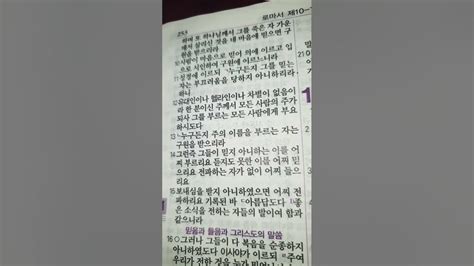 253 로마서 제10-
하며 또 하나님께서 그를 죽은 자 가운
데서 살리신 것을 네 마음에 믿으면 구
원을 받으리라
10 사람이 마음으로 믿어 의에 이르고 입
으로 시인하여 구원에 이르느니라
11 성경에 이르되 누구든지 그를 믿는
자는 부끄러움을 당하지 아니하리라
하니
12 유대인이나 헬라인이나 차별이 없음이
라 한 분이신 주께서 모든 사람의 주가
되사 그를 부르는 모든 사람에게 부요
하시도다
13 누구든지 주의 이름을 부르는 자는
구원을 받으리라
14 그런즉 그들이 믿지 아니하는 이를 어
찌 부르리요 듣지도 못한 이를 어찌 믿
으리요 전파하는 자가 없이 어찌 들으
리요
15 보내심을 받지 아니하였으면 어찌 전
파하리요 기록된 바 아름답도다 좋
은 소식을 전하는 자들의 발이여 함과
같으니라
믿음과 들음과 그리스도의 말씀
16 ○그러나 그들이 다 복음을 순종하지
아니하였도다 이사야가 이르되 주여
우리가 전한 것을 누가 믿었
21
1